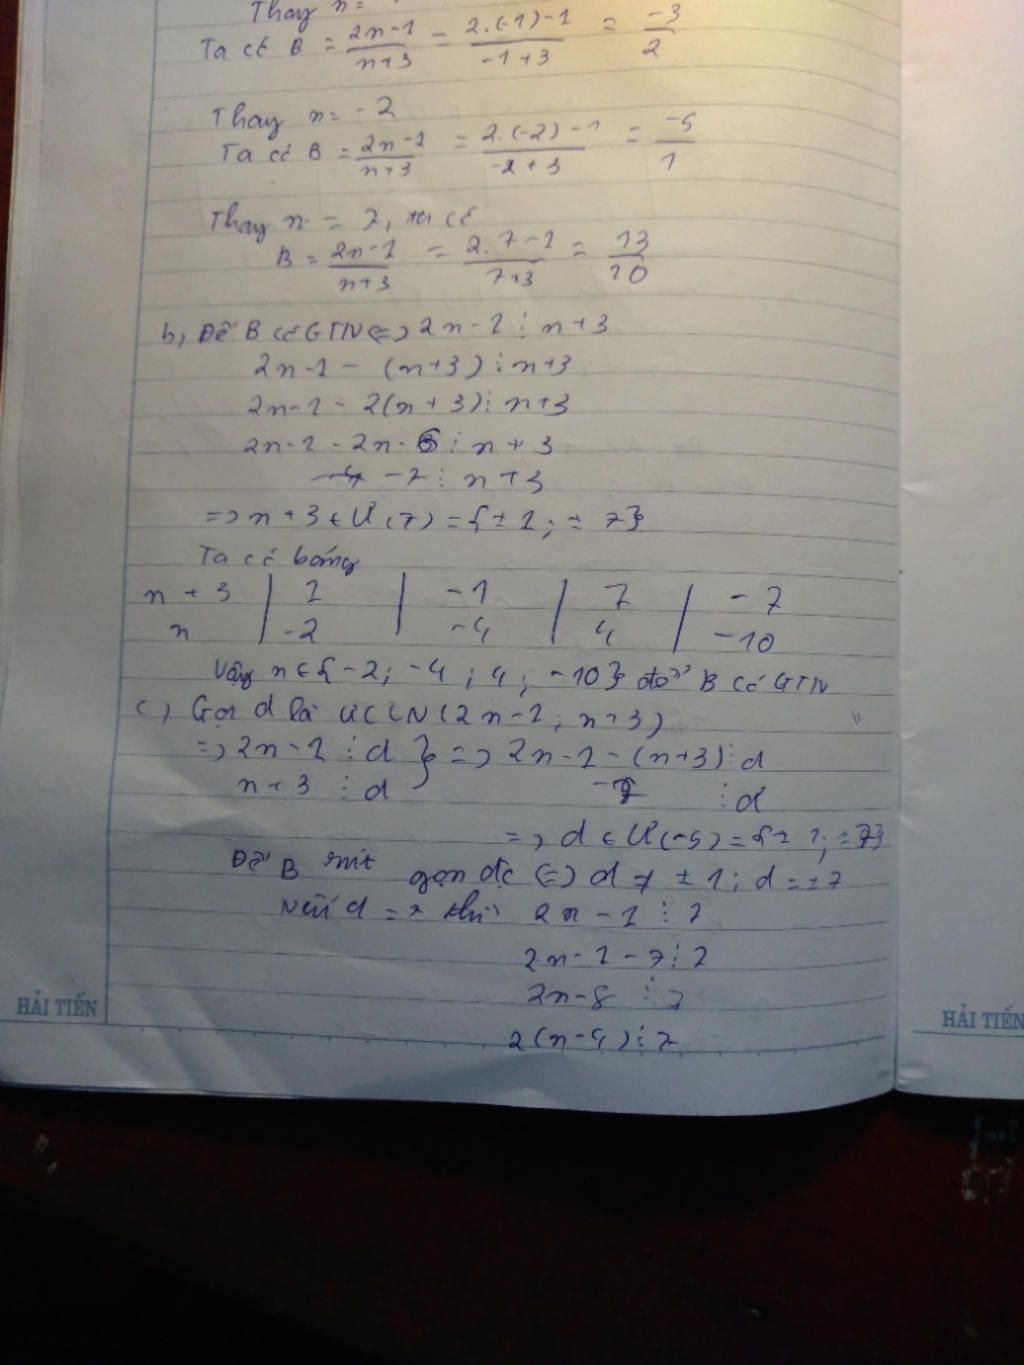 Thay n =
Ta có B = \frac{2n-1}{n+3} = \frac{2.(-1)-1}{-1+3} = \frac{-3}{2}
Thay n = -2
Ta có B = \frac{2n-1}{n+3} = \frac{2.(-2)-1}{-2+3} = \frac{-5}{1}
Thay n = 7, ta có
B = \frac{2n-1}{n+3} = \frac{2.7-1}{7+3} = \frac{13}{10}
b, Để B có GTN <=> 2n-1 ⋮ n+3
2n-1 - (n+3) ⋮ n+3
2n-1 - 2(n+3) ⋮ n+3
2n-1-2n-6 ⋮ n+3
-7 ⋮ n+3
=> n+3 ∈ Ư(7) = {±1; ±7}
Ta có bảng
n+3 | 1 | -1 | 7 | -7
n | -2 | -4 | 4 | -10
Vậy n ∈ {-2; -4; 4; -10} để B có GTN
c, Gọi d là ƯCLN(2n-1; n+3)
=> 2n-1 ⋮ d } => 2n-1-(n+3) ⋮ d
n+3 ⋮ d ⋮ d
=> d ∈ Ư(-5) = {±1; ±7}
Để B rút gọn đc <=> d ≠ ±1; d = ±7
Nếu d = 7 thì 2n-1 ⋮ 7
2n-1-7 ⋮ 7
2n-8 ⋮ 7
2(n-4) ⋮ 7
HẢI TIẾN
HẢI TIẾN